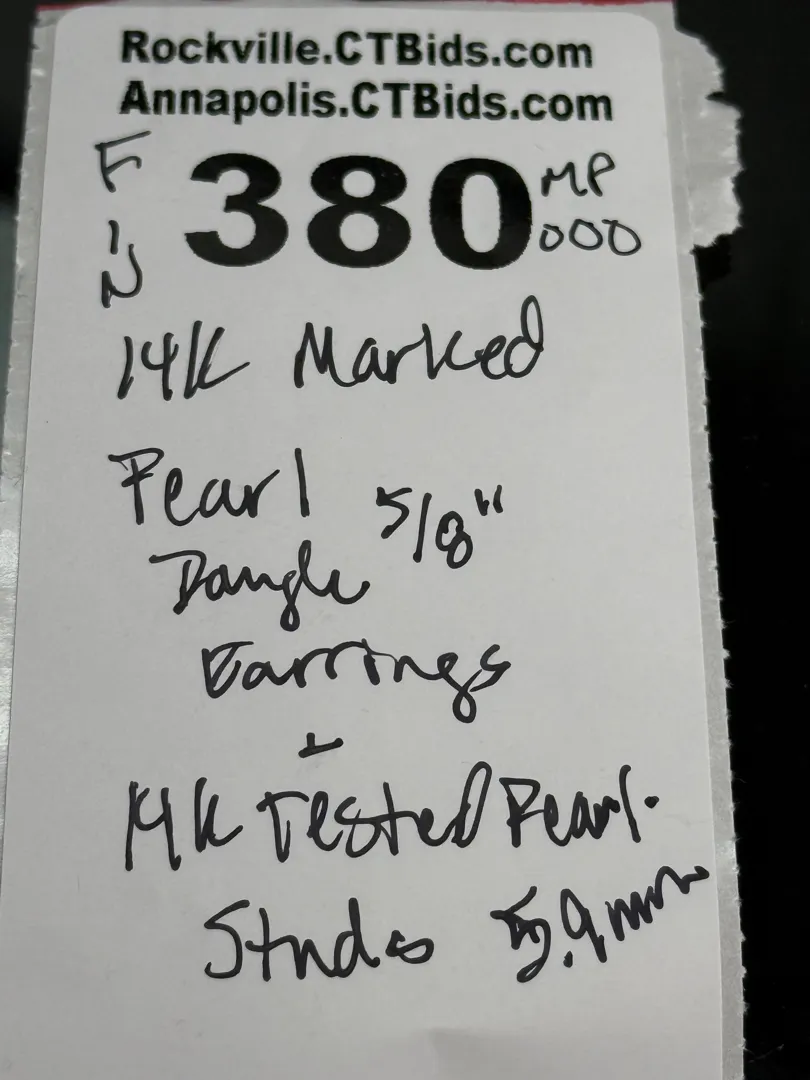 Rockville.CTBids.com
Annapolis.CTBids.com
FIN 380 MP
000
14K Marked
Pearl 5/8"
Dangle
Earrings
+
14k Tested Pearl.
Studs 5.9mm